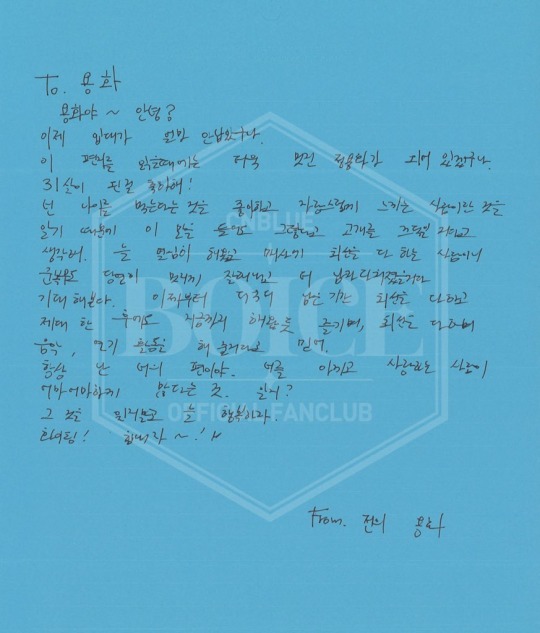 To. 용화
용화야 ~ 안녕?
이제 입대가 얼마 안남았구나.
이 편지를 읽을때에는 더욱 멋진 정용화가 되어 있겠구나.
31살이 된걸 축하해!
넌 나이를 먹는다는 것을 좋아하고 자랑스럽게 느끼는 사람이란 것을
알기 때문에 이 말을 들어도 그렇다고 고개를 끄덕일 거라고
생각해. 늘 열심히 해왔고 매사에 최선을 다 하는 사람이니
군복무도 당연히 멋지게 잘해내고 더 남자다워졌을거라
기대해본다. 이제부터 더 남은 기간 최선을 다하고
제대 한 후에도 지금까지 해왔듯 즐기며, 최선을 다하며
음악, 연기 활동을 해 나가리라고 믿어.
항상 난 너의 편이야. 너를 아끼고 사랑하는 사람이
어마어마하게 많다는 것. 알지?
그 것을 잊지말고 늘 행복하자.
화이팅! 힘내자 ~!
From. 전의 용화
CNBLUE
BOICE
OFFICIAL FANCLUB